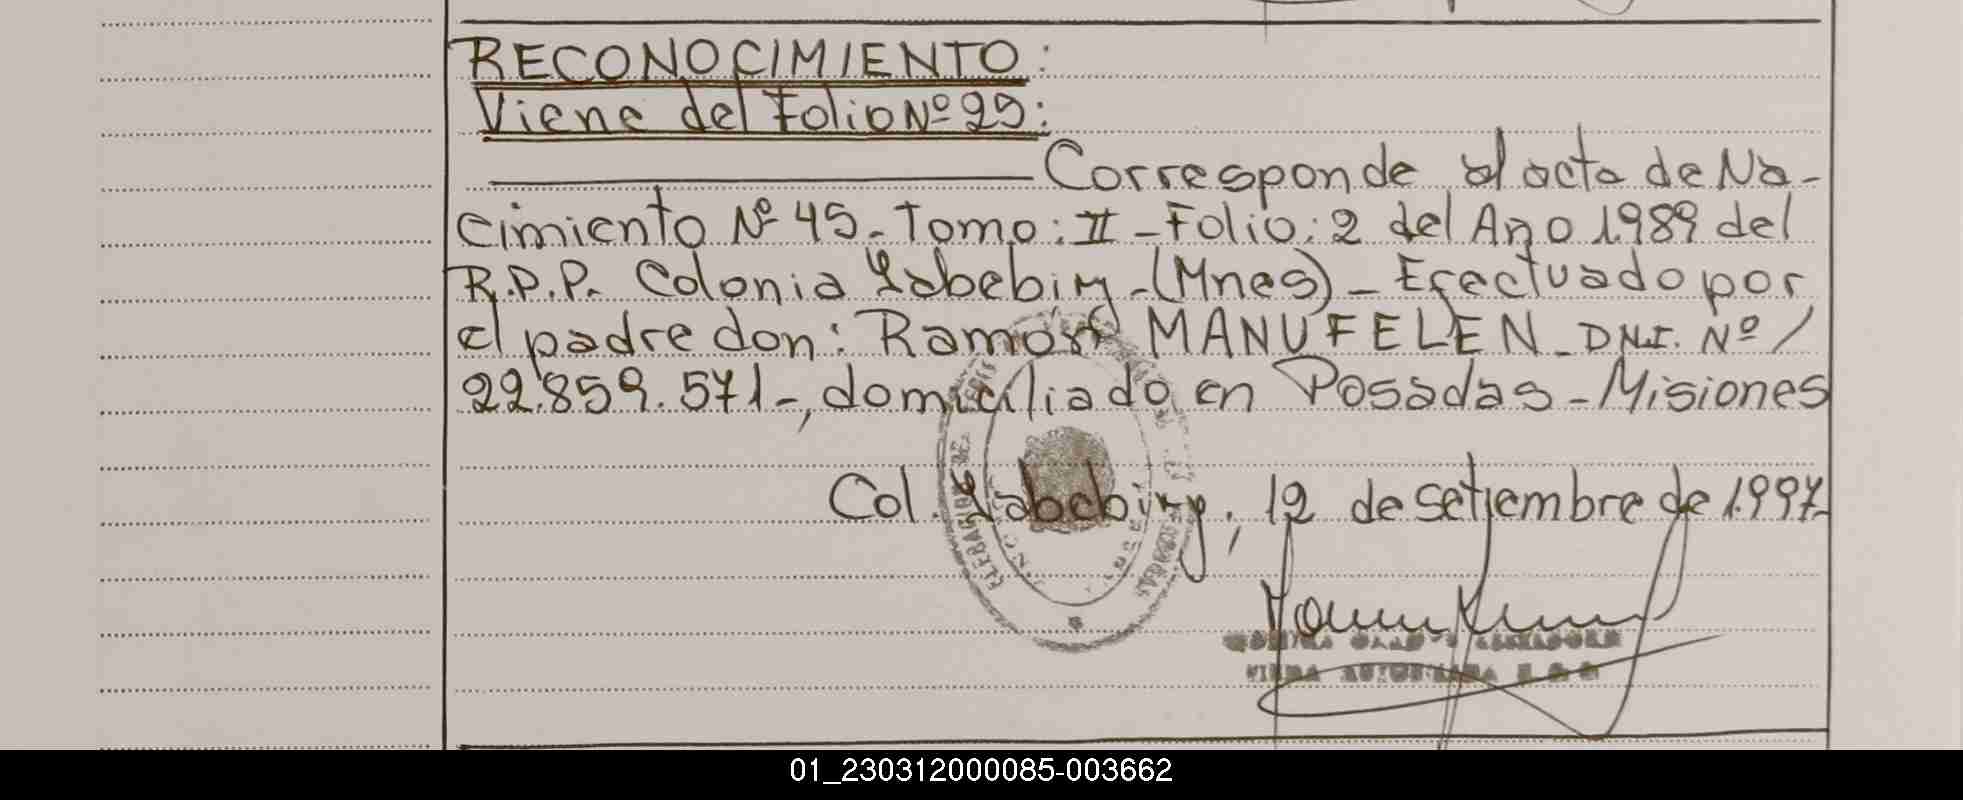 RECONOCIMIENTO:
Viene del Folio Nº 29:
Corresponde al acta de Na-
cimiento Nº 45- Tomo: II - Folio: 2 del Año 1.989 del
R.P.P. Colonia Yabebiry - (Mnes) - Efectuado por
el padre don: Ramón MANUFELEN - DNI. Nº /
22.859.571-, domiciliado en Posadas - Misiones
Col. Yabebiry, 12 de setiembre de 1.997
01_230312000085-003662